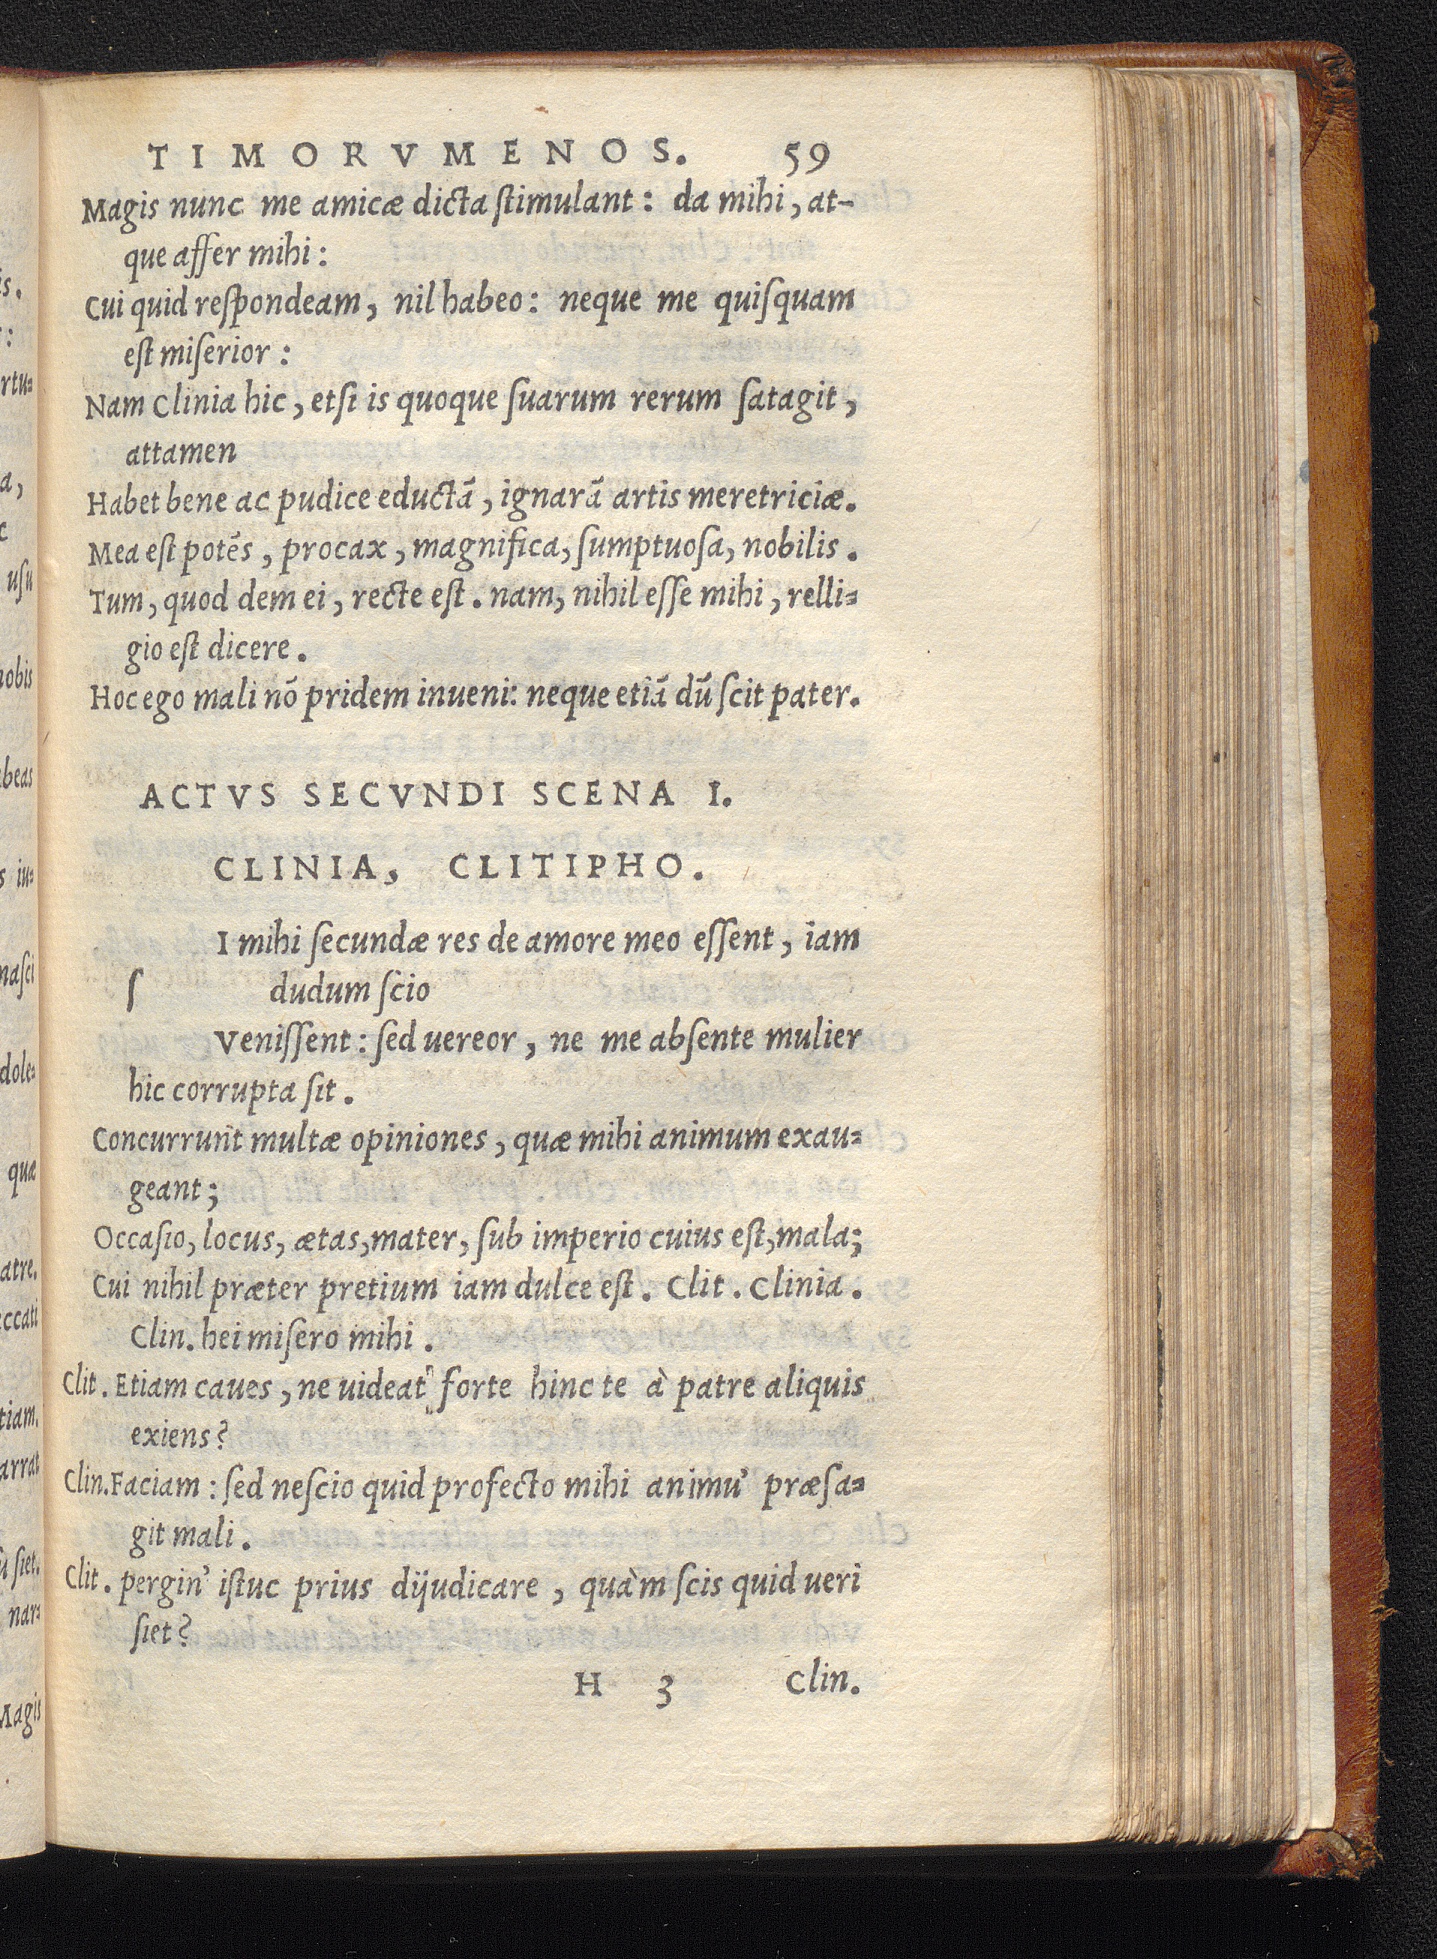 TIMORVMENOS. 59
Magis nunc me amicæ dicta ſtimulant: da mihi, at-
que affer mihi:
Cui quid reſpondeam, nil habeo: neque me quiſquam
eſt miſerior:
Nam Clinia hic, etſi is quoque ſuarum rerum ſatagit,
attamen
Habet bene ac pudice eductā, ignarā artis meretriciæ.
Mea eſt potēs, procax, magnifica, ſumptuoſa, nobilis.
Tum, quod dem ei, recte eſt. nam, nihil eſſe mihi, relli-
gio eſt dicere.
Hoc ego mali nō pridem inueni: neque etiā dū ſcit pater.
ACTVS SECVNDI SCENA I.
CLINIA, CLITIPHO.
ſ I mihi ſecundæ res de amore meo eſſent, iam
dudum ſcio
Veniſſent: ſed uereor, ne me abſente mulier
hic corrupta ſit.
Concurrunt multæ opiniones, quæ mihi animum exau-
geant;
Occaſio, locus, ætas, mater, ſub imperio cuius eſt, mala;
Cui nihil præter pretium iam dulce eſt. Clit. Clinia.
Clin. hei miſero mihi.
Clit. Etiam caues, ne uideat forte hinc te à patre aliquis
exiens?
Clin. Faciam: ſed neſcio quid profecto mihi animu' præſa-
git mali.
Clit. pergin' iſtuc prius dijudicare, quàm ſcis quid ueri
ſiet?
H 3 Clin.
is.
:
rtu-
a,
c
uſu
nobis
beas
s iu-
naſci
dole-
quæ
atre.
eccati
tiam.
arrat
ſiet.
nar-
Magis